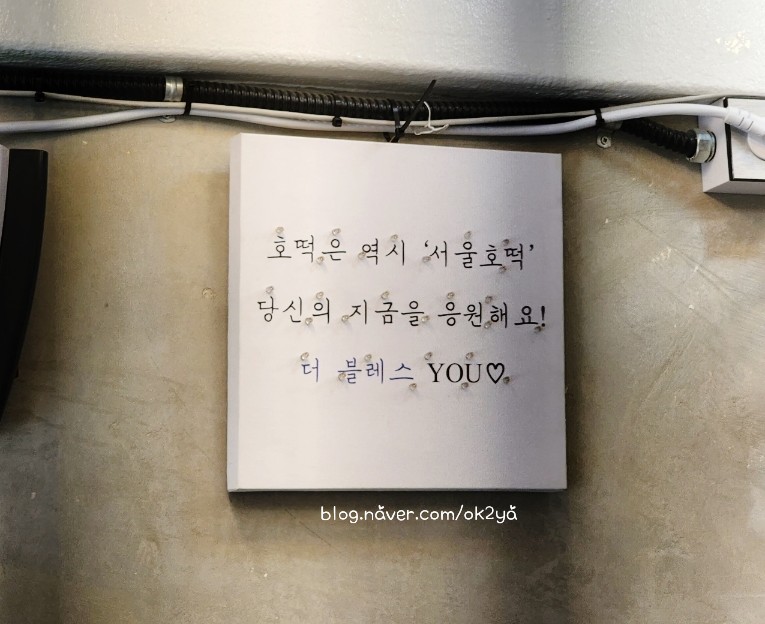 호떡은 역시 ‘서울호떡’
당신의 지금을 응원해요!
더 블레스 YOU♡
blog.naver.com/ok2ya